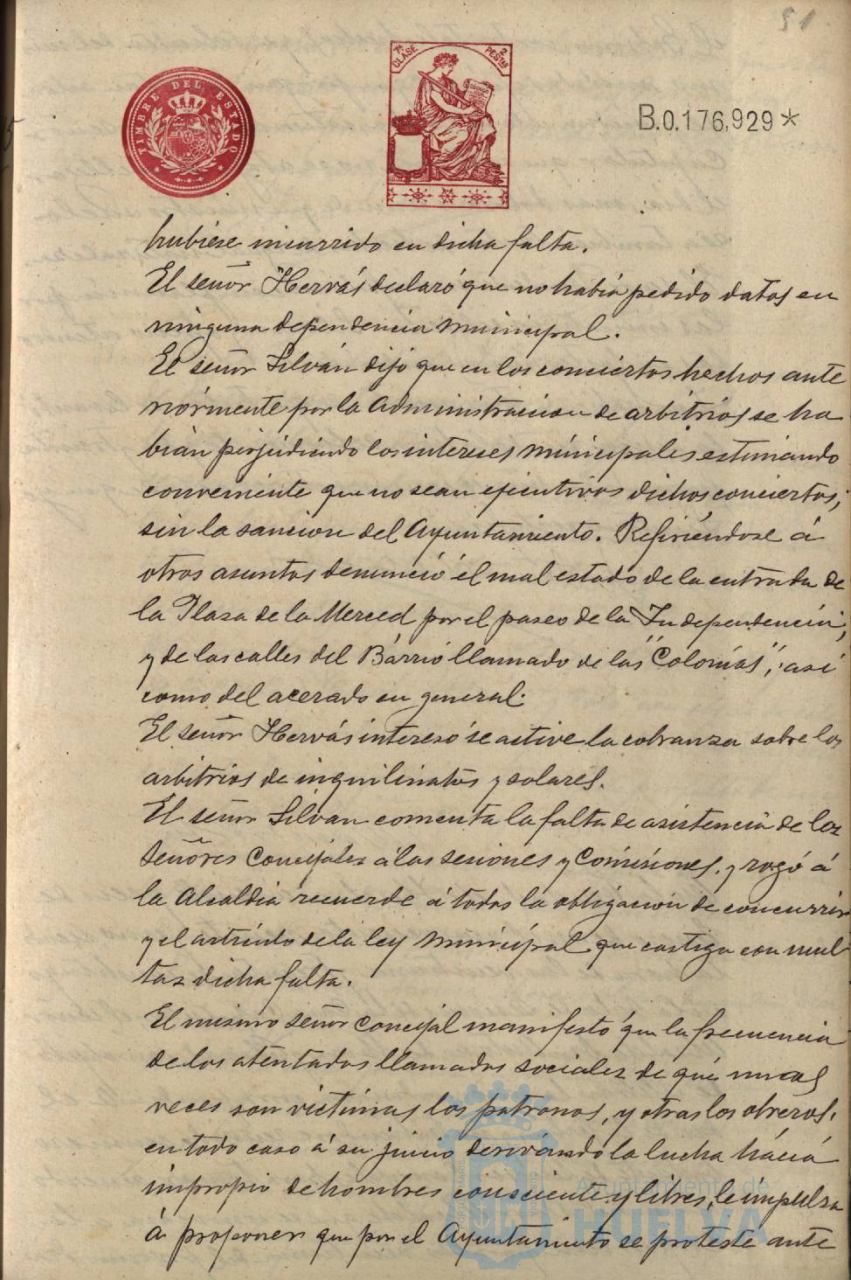 51
TIMBRE DEL ESTADO
7ª CLASE
2 PESTAS
B.0.176,929*
hubiese incurrido en dicha falta.
El señor Hervás declaró que no había pedido datos en
ninguna dependencia municipal.
El señor Silván dijo que en los conciertos hechos ante
riormente por la Administracion de arbitrios se ha
bían perjudicado los intereses municipales estimando
conveniente que no sean ejecutivos dichos conciertos,
sin la sancion del Ayuntamiento. Refiriéndose á
otros asuntos denunció el mal estado de la entrada de
la Plaza de la Merced por el paseo de la Independencia,
y de las calles del Bárrio llamado de las "Colonias", así
como del acerado en general.
El señor Hervás interesó se active la cobranza sobre los
arbitrios de inquilinatos y solares.
El señor Silvan comenta la falta de asistencia de los
señores Concejales á las sesiones y Comisiones, y rogó á
la Alcaldia recuerde á todos la obligación de concurrir
y el artículo de la ley Municipal que castiga con mul
tas dicha falta.
El mismo señor Concejal manifestó que la frecuencia
de los atentados llamados sociales de que unas
veces son víctimas los patronos, y otras los obreros,
en todo caso á su juicio derivando la lucha hácia
impropio de hombres consciente y libres, le impulsa
á proponer que por el Ayuntamiento se proteste ante
Ayuntamiento de
HUELVA